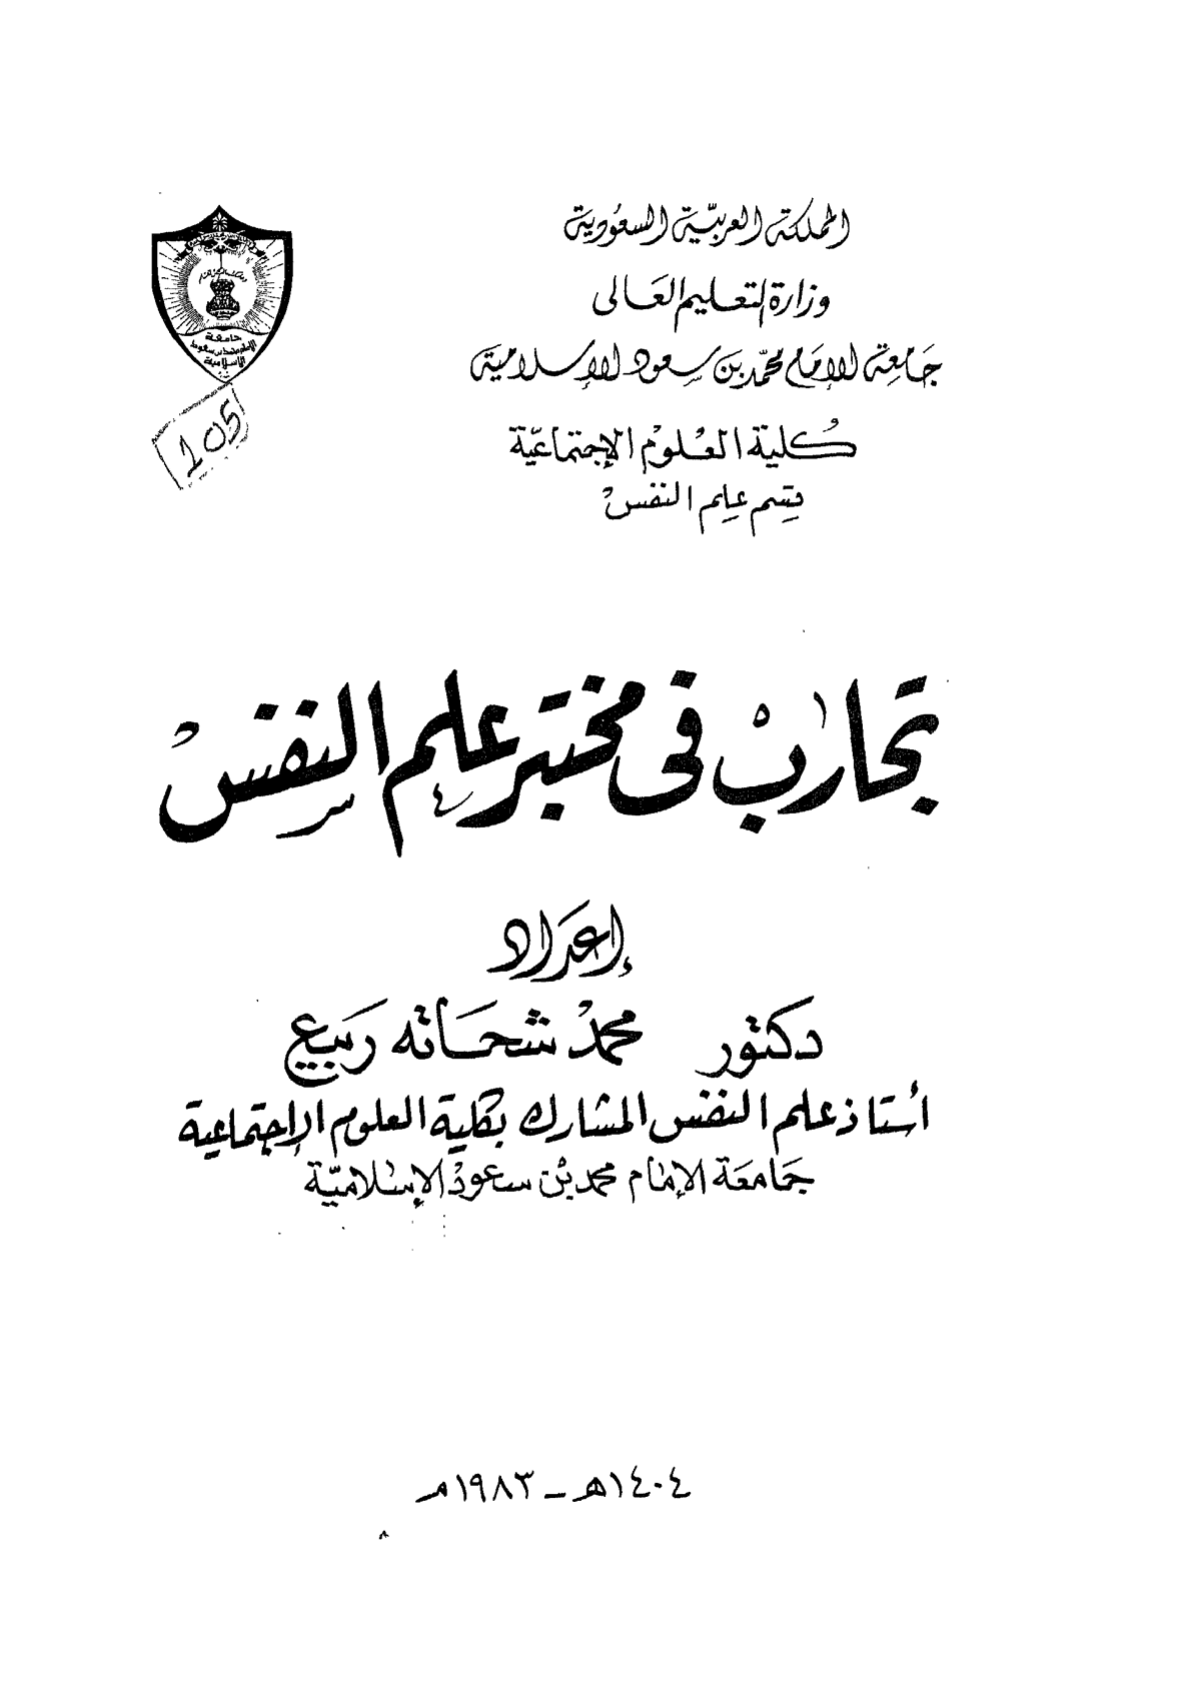 المملكة العربيّة السعُودية
وزارة التعليم العَالى
جَامِعة الإمَام محمّد بن سِعود الإسلامية
كُلية العُلومْ الإجتماعيّة
قِسِم عِلِم النفسْ
جامعة
الإمام محمد بن سعود
الإسلامية
105
تجاربْ فى مختبر عِلِم النفِسْ
إعدَاد
دكتور محمدْ شحَاته رَبيع
أستاذ علم النفس المشارك بكلية العلوم الإجتماعية
جَامعَة الإمَام محمد بْن سعود الإسلاميّة
١٤٠٤هـ - ١٩٨٣م